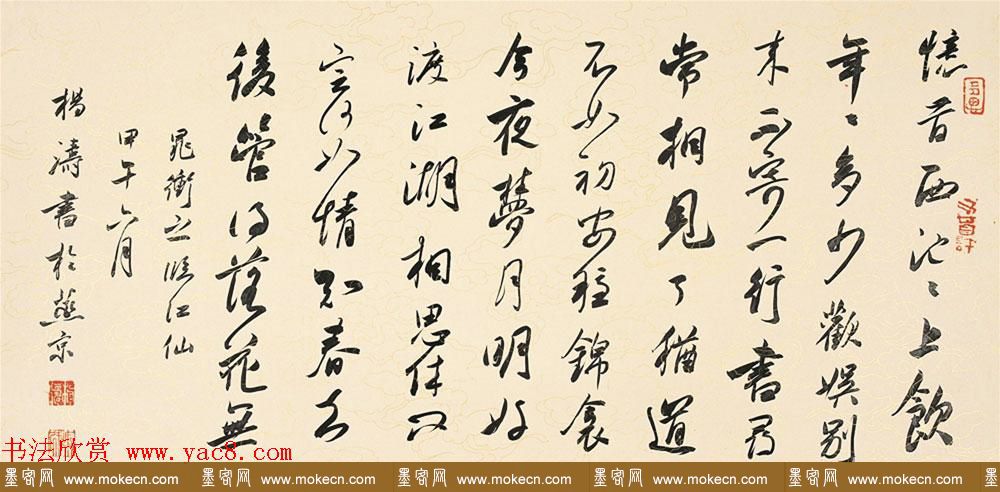 憶昔西池〻上飲
年〻多少歡娛別
来不寄一行書尋
常相見了猶道
不如初安穩錦衾
今夜夢月明好
渡江湖相思休问
定何如情知春去
後管得落花無
晁衝之臨江仙
甲午六月
楊濤書於燕京
书法欣赏 www.yac8.com
墨客网 www.mokecn.com 墨客网 www.mokecn.com 墨客网 www.mokecn.com 墨客网 www.mokecn.com 墨客网 www.mokecn.com